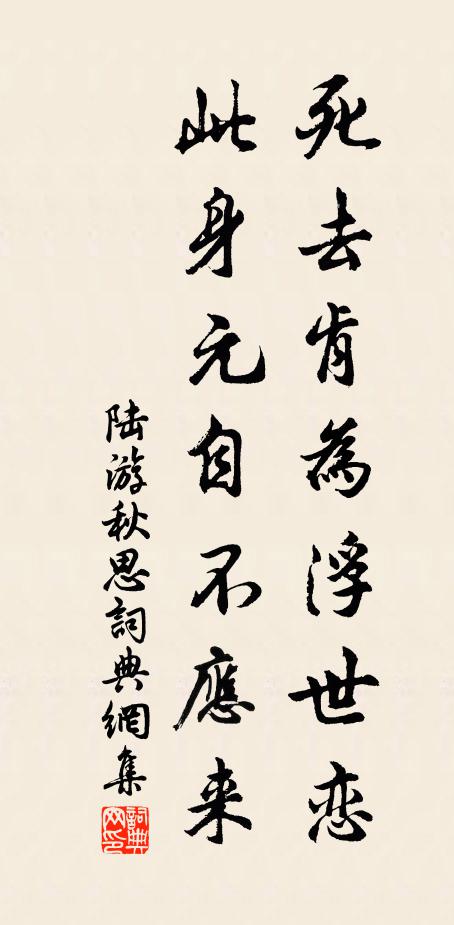 死去肯為浮世恋
此身元自不應来
陆游秋思詞典網集
詞典网印